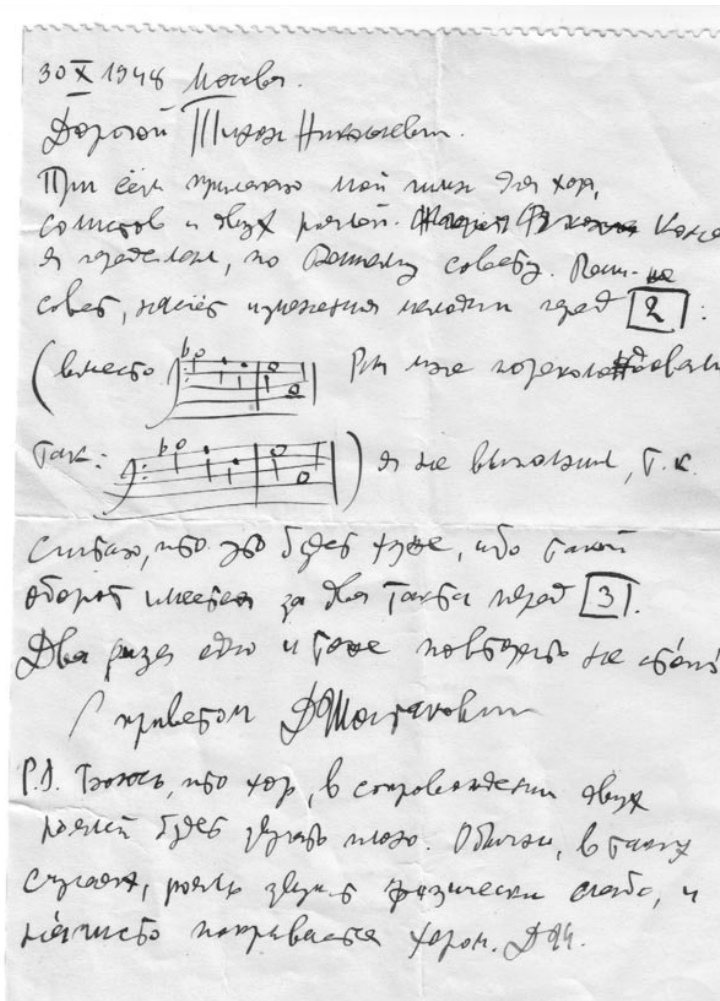 30 X 1948 Москва.
Дорогой Тихон Николаевич.
При сём прилагаю мой гимн для хора,
солистов и двух роялей. Конец
я переделал, по Вашему совету. Ваш
совет, насчёт изменения мелодии перед 2 :
(вместо Вы мне порекомендовали
так: ) я не выполнил, т.к.
считаю, что это будет хуже, ибо такой
оборот имеется за два такта перед 3.
Два раза одно и тоже повторять не стоит
С приветом ДШостакович
P.S. Боюсь, что хор, в сопровождении двух
роялей будет звучать плохо. Обычно, в таких
случаях, рояль звучит физически слабо, и
начисто покрывается хором. ДШ.